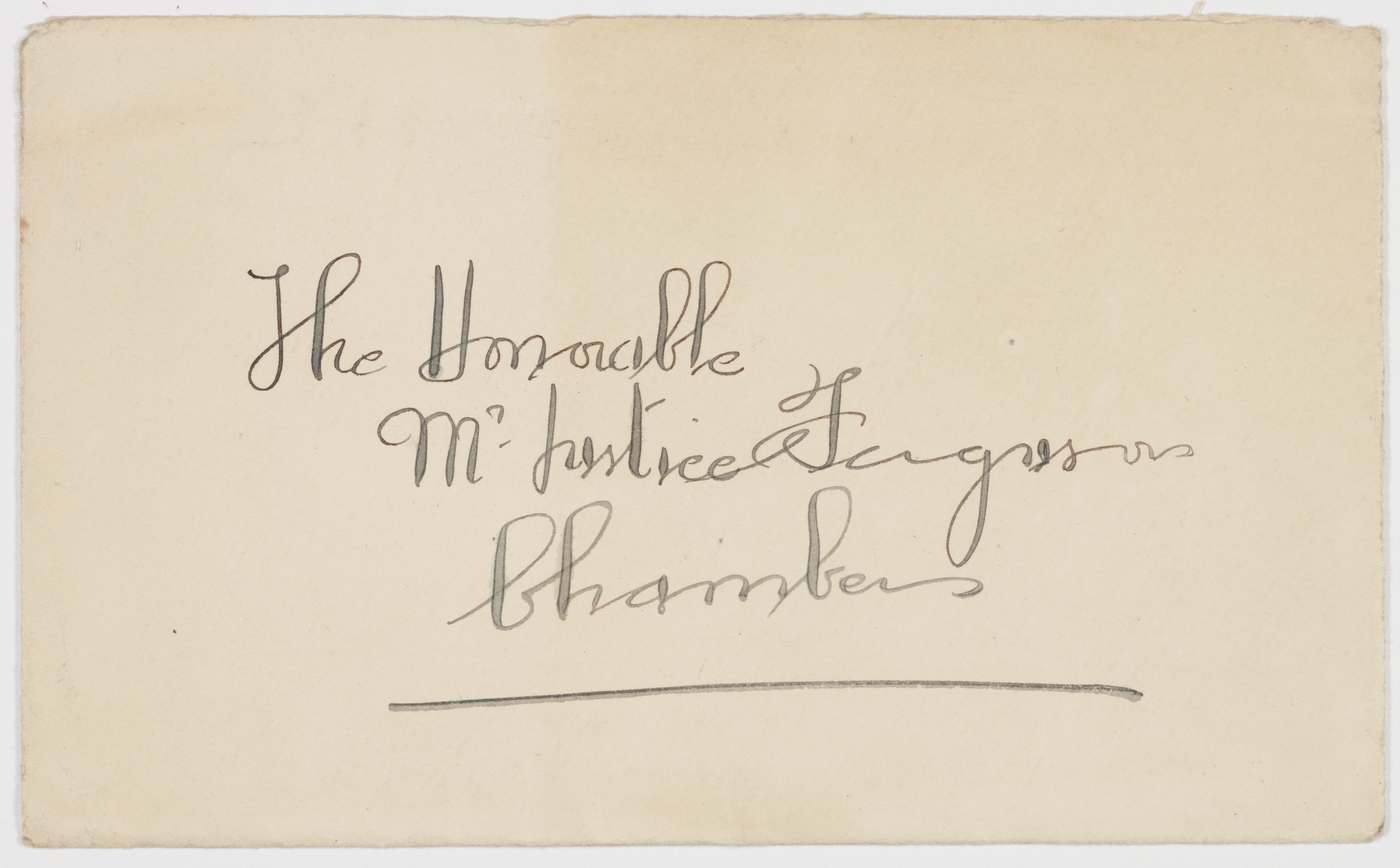 The Honorable
Mr. Justice Ferguson
Chambers